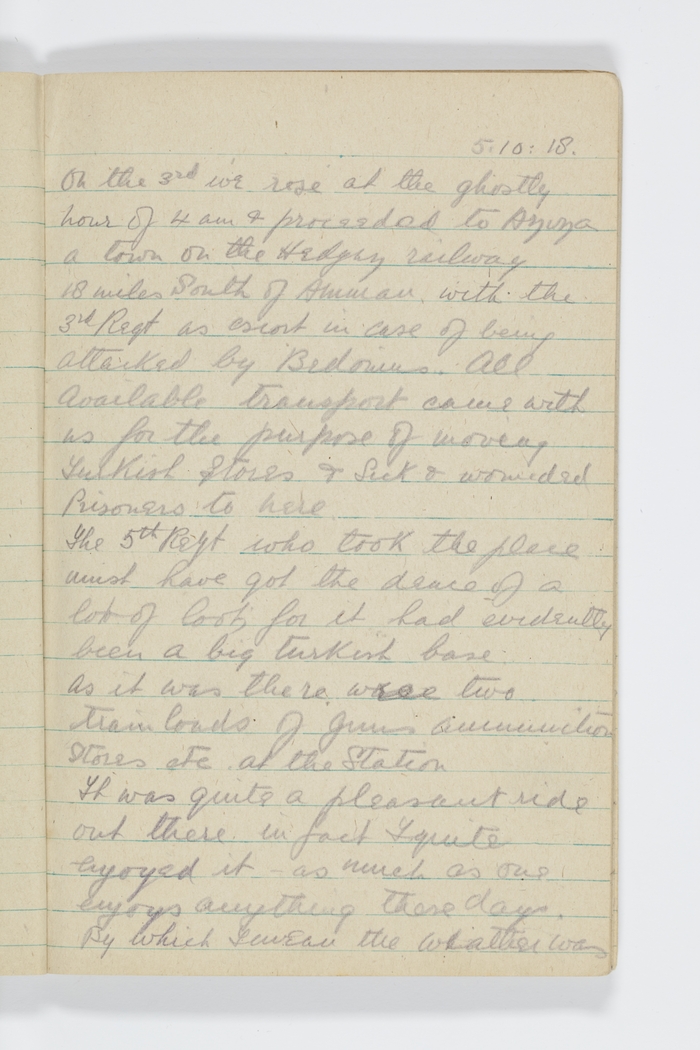 5.10:18.
On the 3rd we rose at the ghostly
hour of 4 am & proceeded to Azyza
a town on the Hedjaz railway
18 miles South of Amman. with the
3rd Regt as escort in case of being
attacked by Bedouins. All
available transport came with
us for the purpose of moveing
Turkish Stores & Sick & wounded
Prisoners to here
The 5th Regt who took the place
must have got the deuce of a
lot of loot, for it had evidently
been a big Turkish base
as it was there were two
train loads of guns ammunition
Stores etc at the Station
It was quite a pleasant ride
out there in fact I quite
enjoyed it - as much as one
enjoys anything these days.
By which I mean the weather was